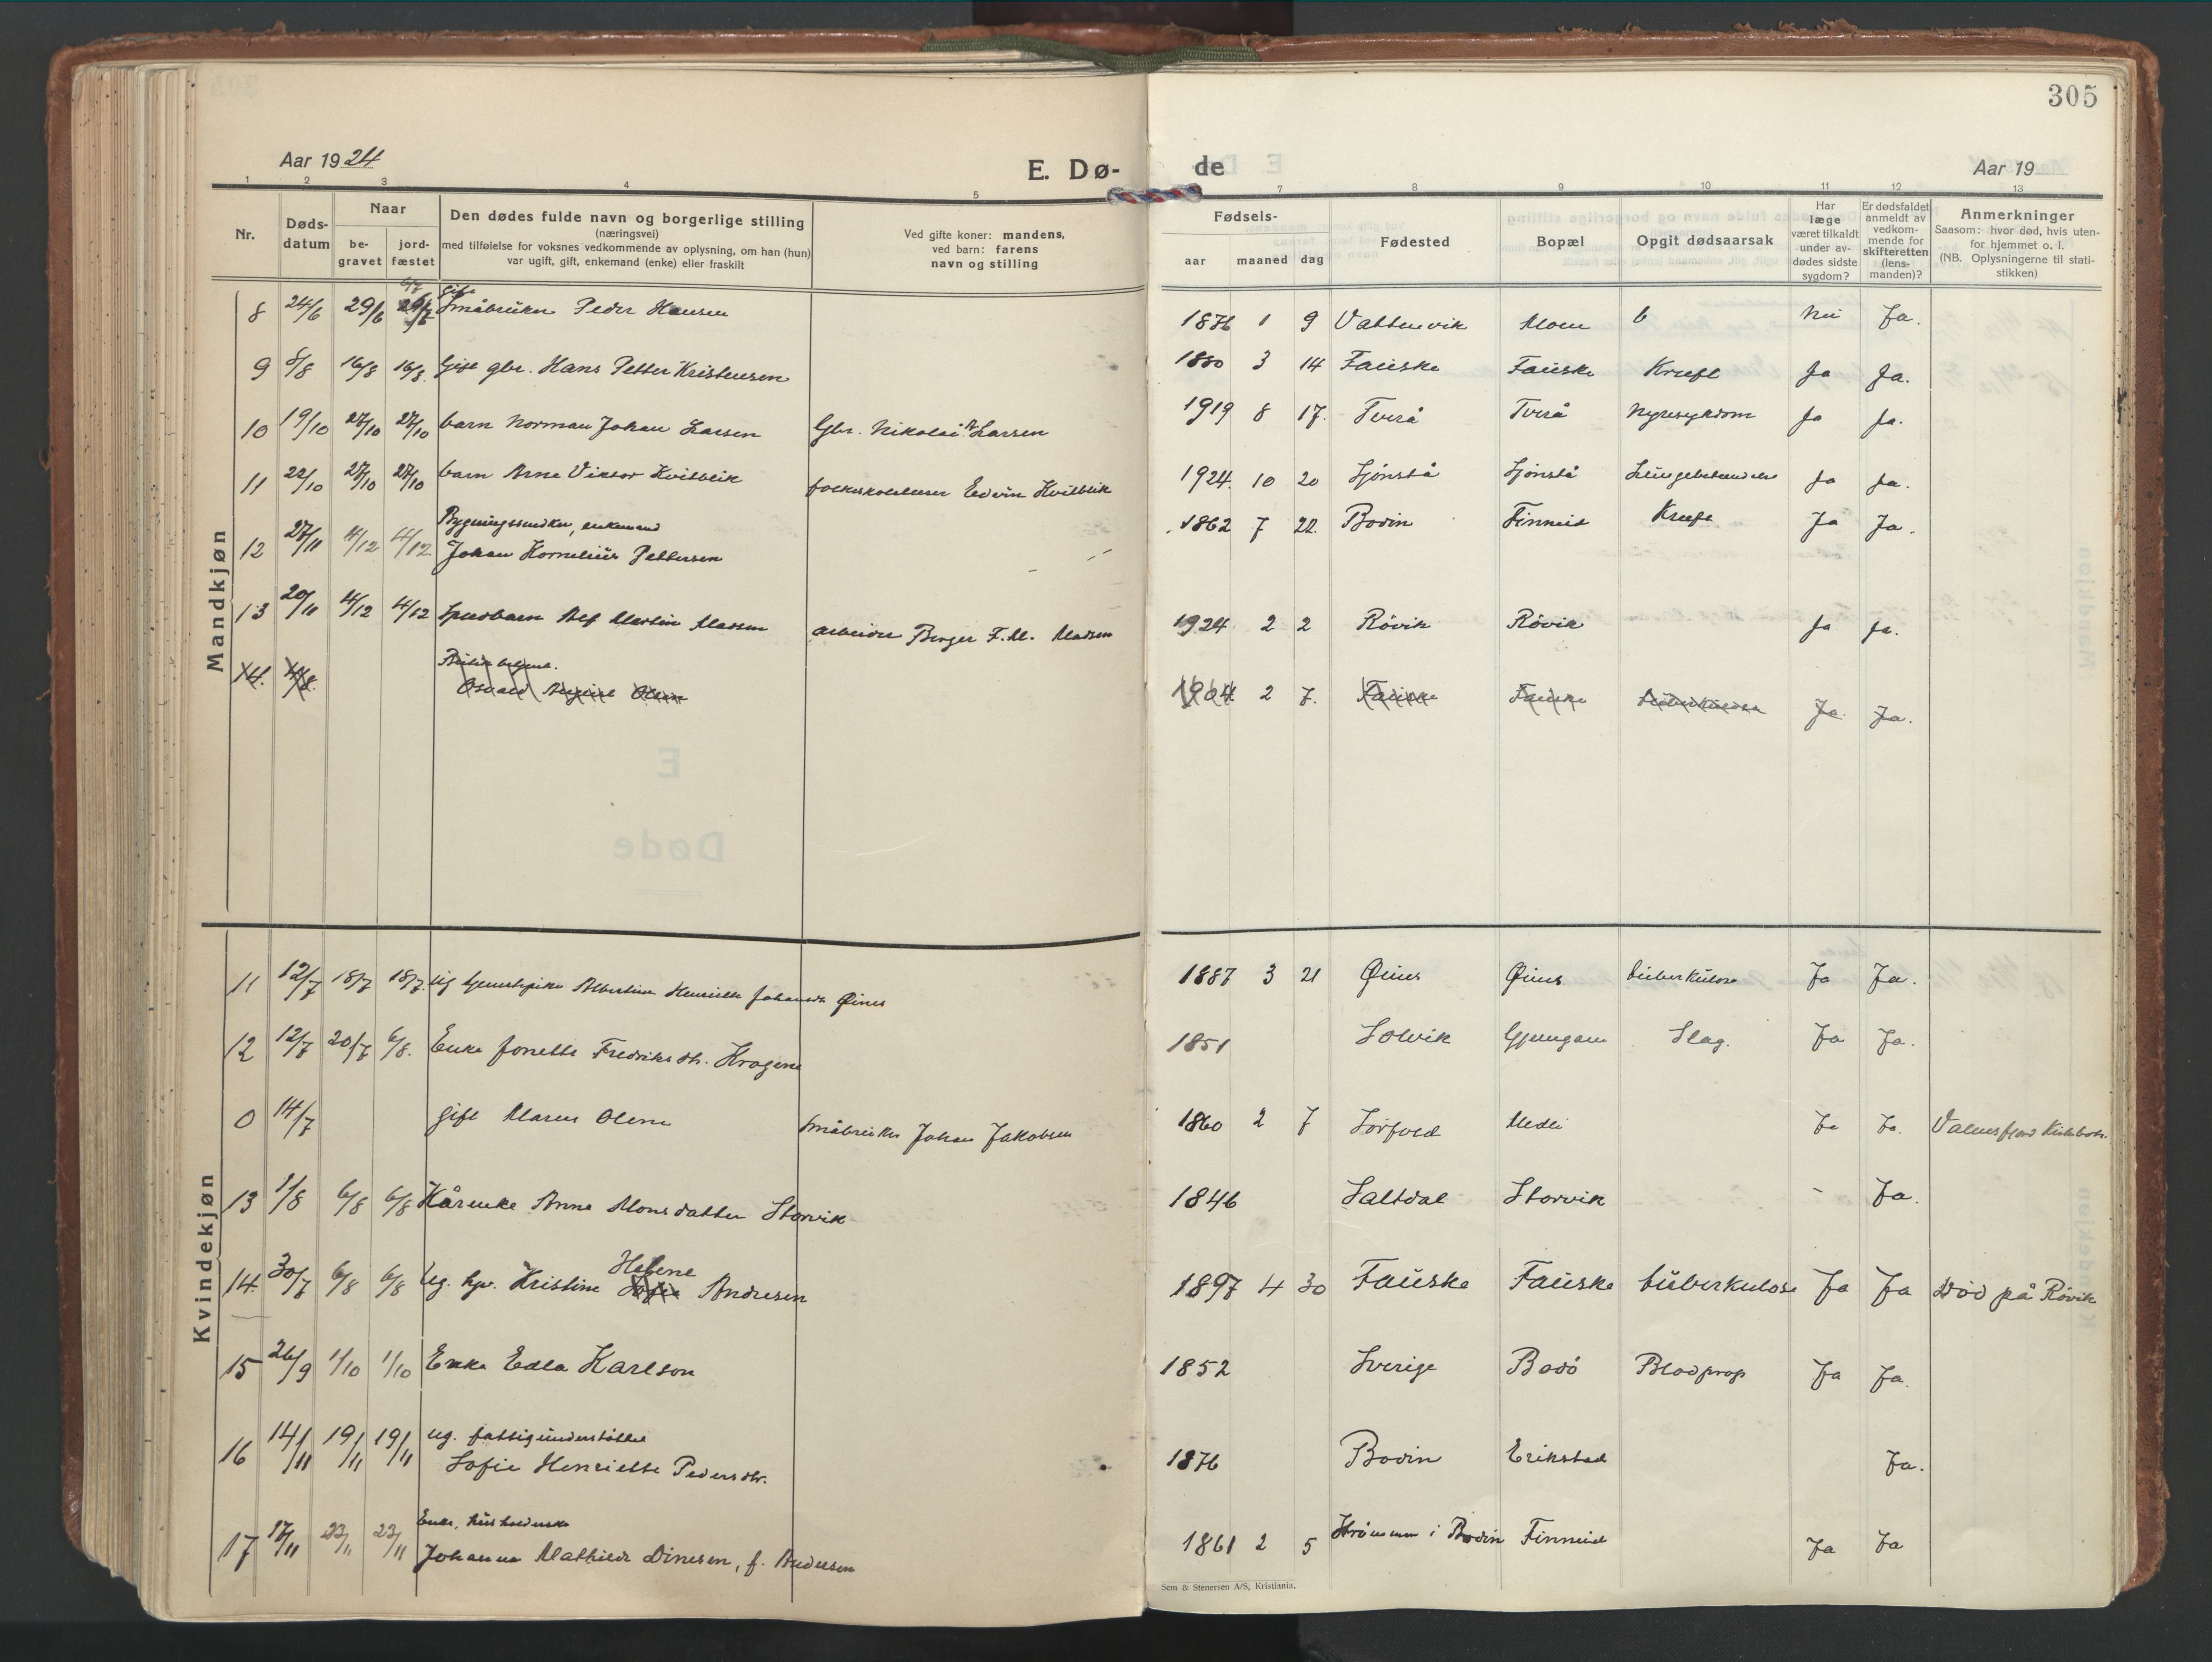 305
Aar 1924
E. Dø-
de
Aar 19
1 2 3 4 5 7 8 9 10 11 12 13
Nr.
Døds-
datum
Naar
be-
gravet
jord-
fæstet
Den dødes fulde navn og borgerlige stilling
(næringsvei)
med tilføielse for voksnes vedkommende av oplysning, om han (hun)
var ugift, gift, enkemand (enke) eller fraskilt
Ved gifte koner: mandens,
ved barn: farens
navn og stilling
Fødsels-
aar maaned dag
Fødested
Bopæl
Opgit dødsaarsak
Har
læge
været tilkaldt
under av-
dødes sidste
sygdom?
Er dødsfaldet
anmeldt av
vedkom-
mende for
skifteretten
(lens-
manden)?
Anmerkninger
Saasom: hvor død, hvis uten-
for hjemmet o. l.
(NB. Oplysningerne til stati-
stikken)
Mandkjøn
gift
8 24/6 29/6 Småbruker Peder Hansen 1876 1 9 Vattenvik Moen Nei Ja.
9 8/8 16/8 16/8. Gift gbr. Hans Petter Kristensen 1880 3 14 Fauske Fauske Kreft Ja Ja.
10 19/10 27/10 27/10 barn Norman Johan Larsen Gbr. Nikolai Larsen 1919 8 17. Tverå Tverå Nyresykdom Ja Ja.
11 22/10 27/10 27/10 barn Arne Viktor Kvitblik Edvin Kvitblik 1924. 10 20 Sjönstå Sjönstå Ja Ja.
Bygningssnedker, enkemand
12 27/11 4/12 4/12 Johan Kornelius Pettersen 1862 7 22. Bodin Finneid Kreft Ja Ja.
13 20/11 4/12 4/12 Spedbarn Alf Martin Madsen arbeider Birger F. M. Madsen 1924 2 2 Rövik Rövik Ja Ja.
14. Osvald August Olsen 1904 2 7. Fauske Fauske Tuberkulose Ja. Ja.
E
Døde
Kvindekjøn
11 12/7 18/7 18/7. Ug tjenestepike Albertine Henriette Johansdr Øines 1887 3 21 Øines Øines tuberkulose Ja Ja.
12 12/7 20/7 6/8. Enke Jonette Fredriksdtr. Kragene 1851 Solvik Gjemgam Slag. Ja Ja.
0 14/7 gift Maren Olene Småbruker Johan Jakobsen 1860 2 7 Sörfold Medli Ja Ja. Valnesfjord Kirkebok.
13 1/8 6/8 6/8 Kårenke Anne Monsdatter Storvik 1846 Saltdal Storvik - Ja.
Helene
14. 30/7 6/8 6/8 Ug. hpr. Kristine Sofie Andresen 1897 4 30 Fauske Fauske tuberkulose Ja Ja Död på Rövik
15 26/9 1/10 1/10 Enke Edla Karlson 1852 Sverige Bodö Blodprop Ja Ja.
ug. fattigunderstöttet
16 14/11 19/11 19/11 Sofie Henriette Pedersdtr. 1876 Bodin Erikstad Ja.
Enke, husholderske
17 17/11 23/11 23/11 Johanna Mathilde Dinesen, f. Andersen 1861 2 5 Strömmen i Bodin Finneid Ja Ja
Sem & Stenersen A/S, Kristiania.